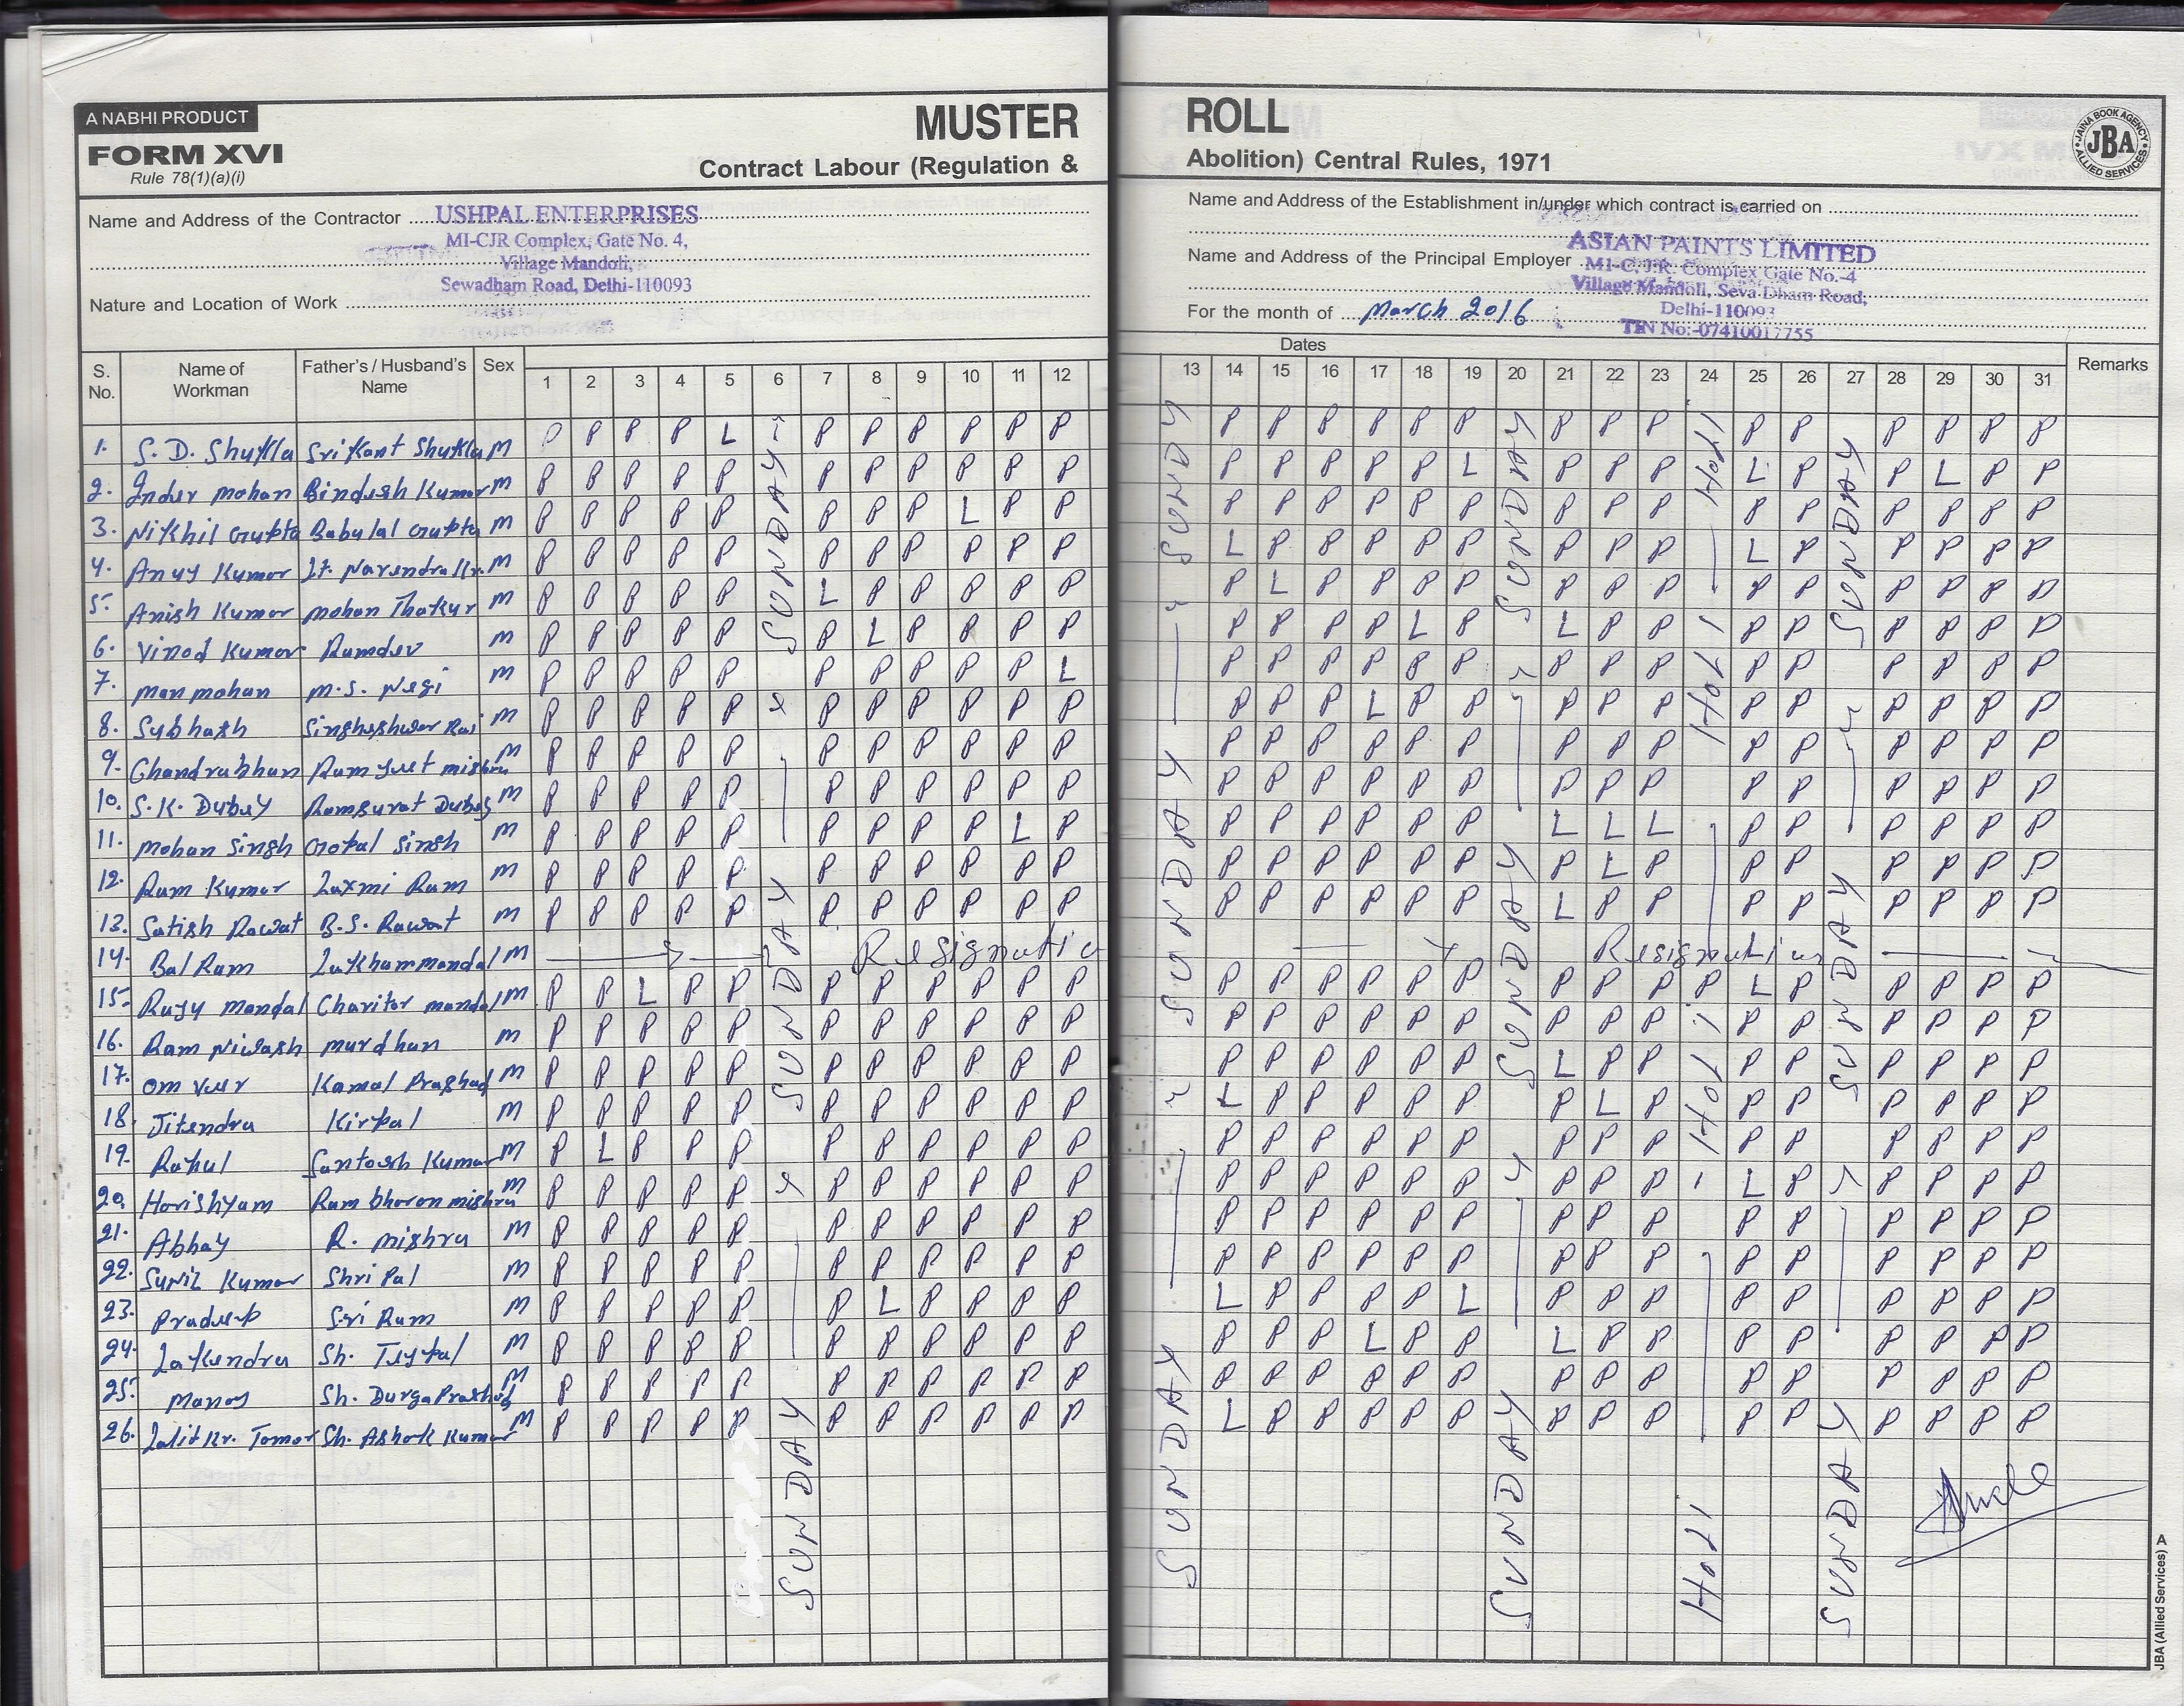 A NABHI PRODUCT
FORM XVI
Rule 78(1)(a)(i)
MUSTER ROLL
Contract Labour (Regulation & Abolition) Central Rules, 1971
JAINA BOOK AGENCY
JBA
ALLIED SERVICES
Name and Address of the Contractor USHPAL ENTERPRISES
MI-CJR Complex, Gate No. 4,
Village Mandoli,
Sewadham Road, Delhi-110093
Nature and Location of Work
Name and Address of the Establishment in/under which contract is carried on
ASIAN PAINTS LIMITED
Name and Address of the Principal Employer M1-C.J.R. Complex Gate No.-4
Village Mandoli, Seva Dham Road,
Delhi-110093
TIN No:-07410017755
For the month of March 2016
Dates
S. No. Name of Workman Father's / Husband's Name Sex 1 2 3 4 5 6 7 8 9 10 11 12 13 14 15 16 17 18 19 20 21 22 23 24 25 26 27 28 29 30 31 Remarks
1. S. D. Shukla Srikant Shukla M P P P P L P P P P P P P P P P P P P P P P P P P P P
2. Inder mohan Bindesh Kumar M P P P P P P P P P P P P P P P P L P P P L P P L P P
3. Nikhil Gupta Babulal Gupta M P P P P P P P P L P P P P P P P P P P P P P P P P P
4. Anuj Kumar Lt. Narendra Kr. M P P P P P P P P P P P L P P P P P P P P L P P P P P
5. Anish Kumar mohan Thakur M P P P P P L P P P P P P L P P P P P P P P P P P P P
6. Vinod Kumar Ramdev M P P P P P P L P P P P P P P P L P L P P P P P P P P
7. man mohan m.s. Negi M P P P P P P P P P P L P P P P P P P P P P P P P P P
8. Subhash Singheshwar Rai M P P P P P P P P P P P P P P L P P P P P P P P P P P
9. Chandrabhan Ram Jeet mishra M P P P P P P P P P P P P P P P P P P P P P P P P P P
10. S.K. Dubey Ramsurat Dubey M P P P P P P P P P P P P P P P P P P P P P P P P P P
11. mohan Singh Gopal Singh M P P P P P P P P P L P P P P P P P L L L P P P P P P
12. Ram Kumar Laxmi Ram M P P P P P P P P P P P P P P P P P P L P P P P P P P
13. Satish Rawat B.S. Rawat M P P P P P P P P P P P P P P P P P L P P P P P P P P
14. Bal Ram Lakhan mandal M Resignation Resignation
15. Raju mandal Charitar mandal M P P L P P P P P P P P P P P P P P P P P P L P P P P P
16. Ram Niwash murdhan M P P P P P P P P P P P P P P P P P P P P P P P P P P
17. om veer Kamal Prashad M P P P P P P P P P P P P P P P P P L P P P P P P P P
18. Jitendra Kirpal M P P P P P P P P P P P L P P P P P P L P P P P P P P
19. Rahul Santosh Kumar M P L P P P P P P P P P P P P P P P P P P P P P P P P
20. Harishyam Ram bharon mishra M P P P P P P P P P P P P P P P P P P P P L P P P P P
21. Abhay R. mishra M P P P P P P P P P P P P P P P P P P P P P P P P P P
22. Sunil Kumar Shri Pal M P P P P P P P P P P P P P P P P P P P P P P P P P P
23. Pradeep Sri Ram M P P P P P P L P P P P L P P P P L P P P P P P P P P
24. Lakendra Sh. Tejpal M P P P P P P P P P P P P P P L P P L P P P P P P P P
25. manoj Sh. Durga Prashad M P P P P P P P P P P P P P P P P P P P P P P P P P P
26. Lalit Kr. Tomar Sh. Ashok Kumar M P P P P P P P P P P P L P P P P P P P P P P P P P P
SUNDAY
SUNDAY
SUNDAY
SUNDAY
SUNDAY
SUNDAY
SUNDAY
SUNDAY
SUNDAY
SUNDAY
SUNDAY
SUNDAY
JBA (Allied Services) A